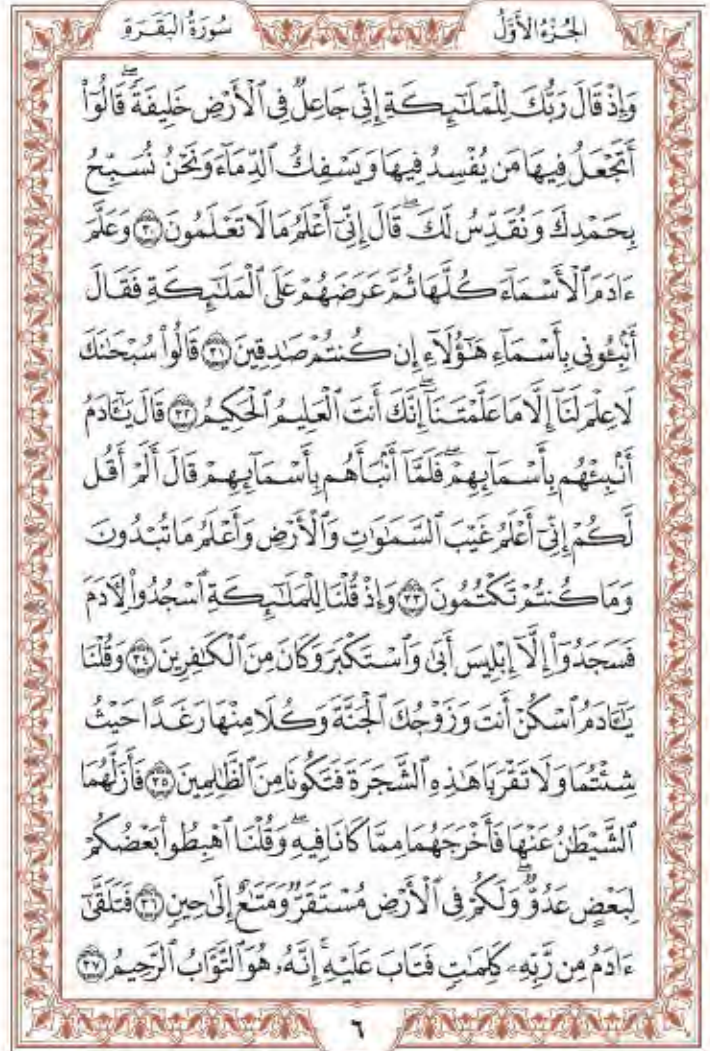 الجُزْءُ الأَوَّلُ
سُورَةُ البَقَرَةِ
وَإِذْ قَالَ رَبُّكَ لِلْمَلَٰٓئِكَةِ إِنِّى جَاعِلٌ فِى ٱلْأَرْضِ خَلِيفَةًۖ قَالُوٓا۟
أَتَجْعَلُ فِيهَا مَن يُفْسِدُ فِيهَا وَيَسْفِكُ ٱلدِّمَآءَ وَنَحْنُ نُسَبِّحُ
بِحَمْدِكَ وَنُقَدِّسُ لَكَۖ قَالَ إِنِّىٓ أَعْلَمُ مَا لَا تَعْلَمُونَ ٣٠ وَعَلَّمَ
ءَادَمَ ٱلْأَسْمَآءَ كُلَّهَا ثُمَّ عَرَضَهُمْ عَلَى ٱلْمَلَٰٓئِكَةِ فَقَالَ
أَنۢبِـُٔونِى بِأَسْمَآءِ هَٰٓؤُلَآءِ إِن كُنتُمْ صَٰدِقِينَ ٣١ قَالُوا۟ سُبْحَٰنَكَ
لَا عِلْمَ لَنَآ إِلَّا مَا عَلَّمْتَنَآۖ إِنَّكَ أَنتَ ٱلْعَلِيمُ ٱلْحَكِيمُ ٣٢ قَالَ يَٰٓـَٔادَمُ
أَنۢبِئْهُم بِأَسْمَآئِهِمْۖ فَلَمَّآ أَنۢبَأَهُم بِأَسْمَآئِهِمْ قَالَ أَلَمْ أَقُل
لَّكُمْ إِنِّىٓ أَعْلَمُ غَيْبَ ٱلسَّمَٰوَٰتِ وَٱلْأَرْضِ وَأَعْلَمُ مَا تُبْدُونَ
وَمَا كُنتُمْ تَكْتُمُونَ ٣٣ وَإِذْ قُلْنَا لِلْمَلَٰٓئِكَةِ ٱسْجُدُوا۟ لِـَٔادَمَ
فَسَجَدُوٓا۟ إِلَّآ إِبْلِيسَ أَبَىٰ وَٱسْتَكْبَرَ وَكَانَ مِنَ ٱلْكَٰفِرِينَ ٣٤ وَقُلْنَا
يَٰٓـَٔادَمُ ٱسْكُنْ أَنتَ وَزَوْجُكَ ٱلْجَنَّةَ وَكُلَا مِنْهَا رَغَدًا حَيْثُ
شِئْتُمَا وَلَا تَقْرَبَا هَٰذِهِ ٱلشَّجَرَةَ فَتَكُونَا مِنَ ٱلظَّٰلِمِينَ ٣٥ فَأَزَلَّهُمَا
ٱلشَّيْطَٰنُ عَنْهَا فَأَخْرَجَهُمَا مِمَّا كَانَا فِيهِۖ وَقُلْنَا ٱهْبِطُوا۟ بَعْضُكُمْ
لِبَعْضٍ عَدُوٌّۖ وَلَكُمْ فِى ٱلْأَرْضِ مُسْتَقَرٌّ وَمَتَٰعٌ إِلَىٰ حِينٍ ٣٦ فَتَلَقَّىٰٓ
ءَادَمُ مِن رَّبِّهِۦ كَلِمَٰتٍ فَتَابَ عَلَيْهِۚ إِنَّهُۥ هُوَ ٱلتَّوَّابُ ٱلرَّحِيمُ ٣٧
٦